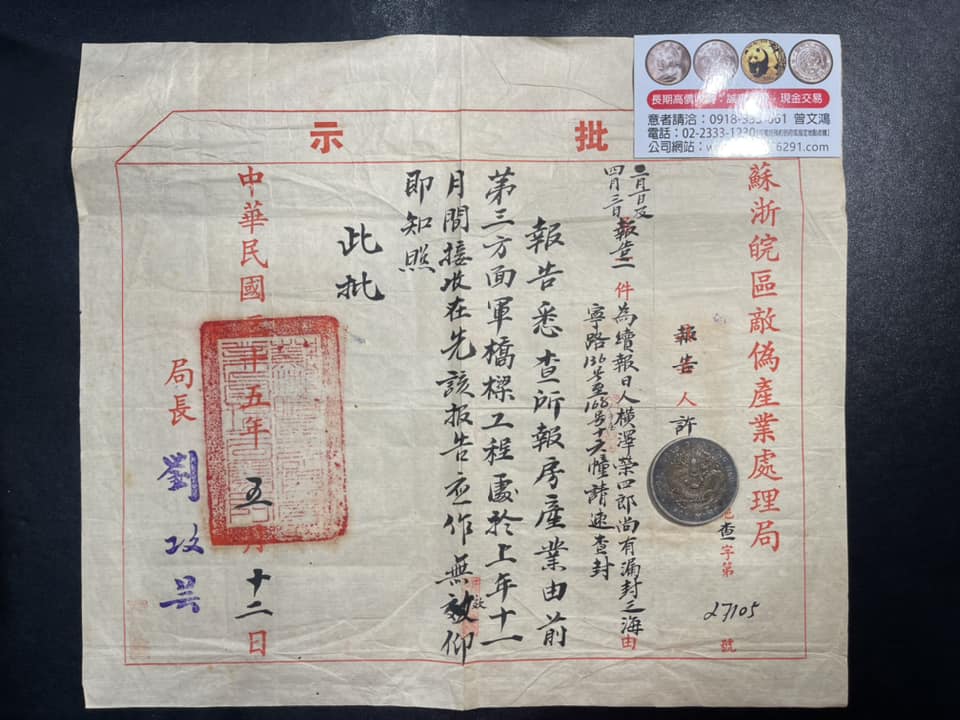 長期高價
現金交易
意者請洽：0918- 曾文鴻
電話：02-2333-1230
公司網站：w 6291.com
批示
蘇浙皖區敵偽產業處理局
查字第
27105
號
報告人許
二月一日及
四月三日報告一件為續報日人橫澤榮四郎尚有漏封之海由
寧路136号至168号十六幢請速查封
報告悉查所報房產業由前
第三方面軍橋樑工程處於上年十一
月間接收在先該報告应作無效仰
即知照
此批
中華民國三十五年五月十二日
局長
劉攻芸